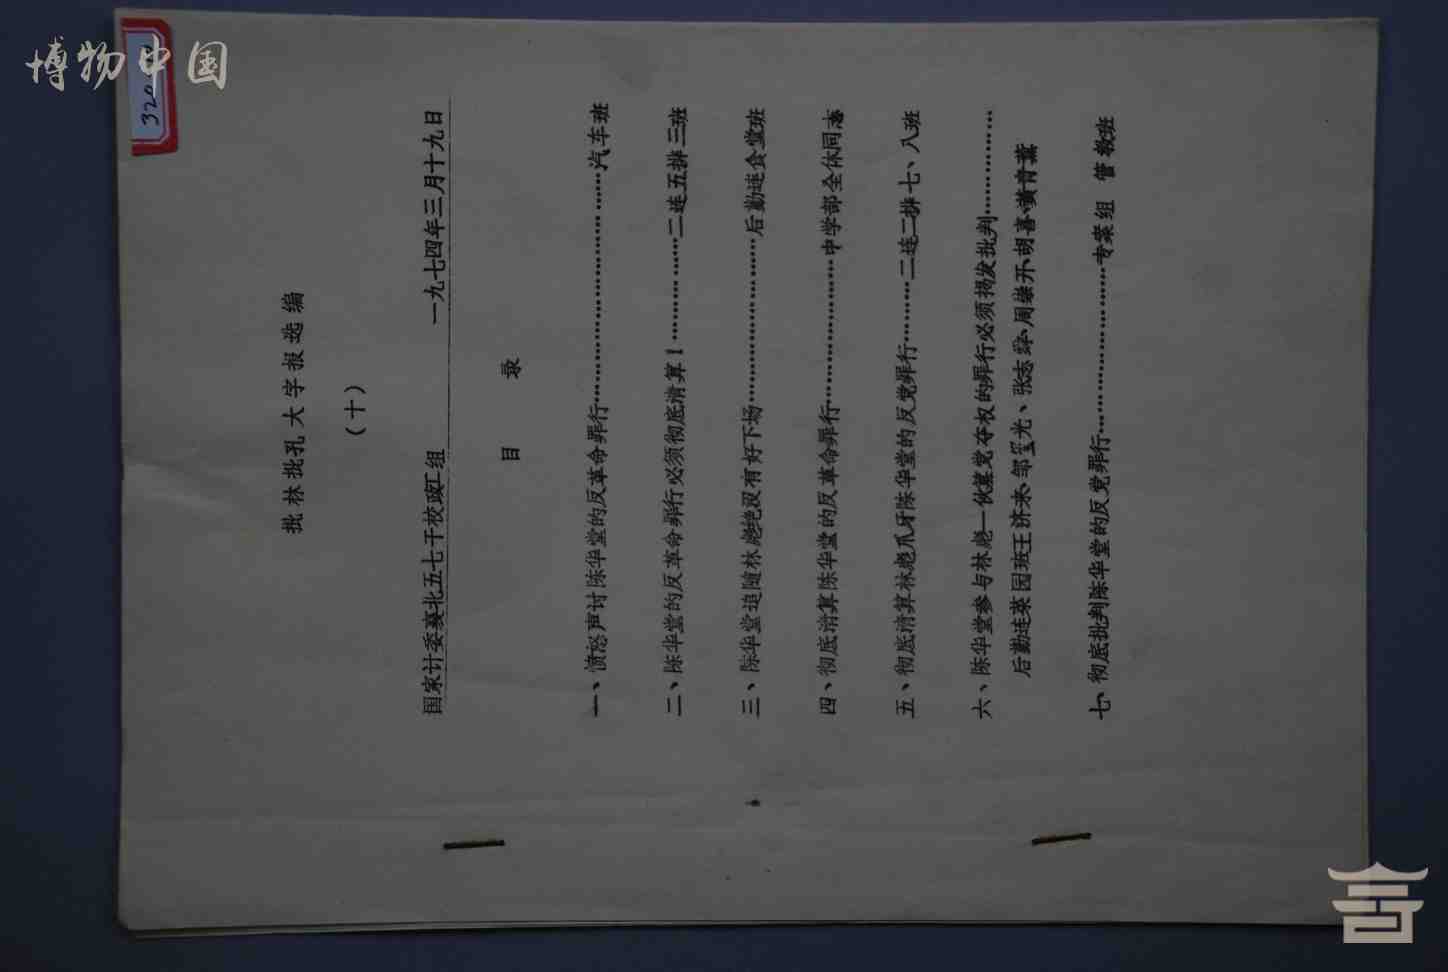 博物中国
320
批林批孔大字报选编
（十）
国家计委襄北五七干校政工组 一九七四年三月十九日
目 录
一、愤怒声讨陈华堂的反革命罪行……………………汽车班
二、陈华堂的反革命罪行必须彻底清算！…………二连五排三班
三、陈华堂追随林彪绝没有好下场…………………后勤连食堂班
四、彻底清算陈华堂的反革命罪行………………中学部全体同志
五、彻底清算林彪爪牙陈华堂的反党罪行………二连二排七、八班
六、陈华堂参与林彪一伙篡党夺权的罪行必须揭发批判……………
后勤连菜园班王济来、邹宝光、张志 、周 开、胡喜、黄青
七、彻底批判陈华堂的反党罪行…………………专案组 管教班